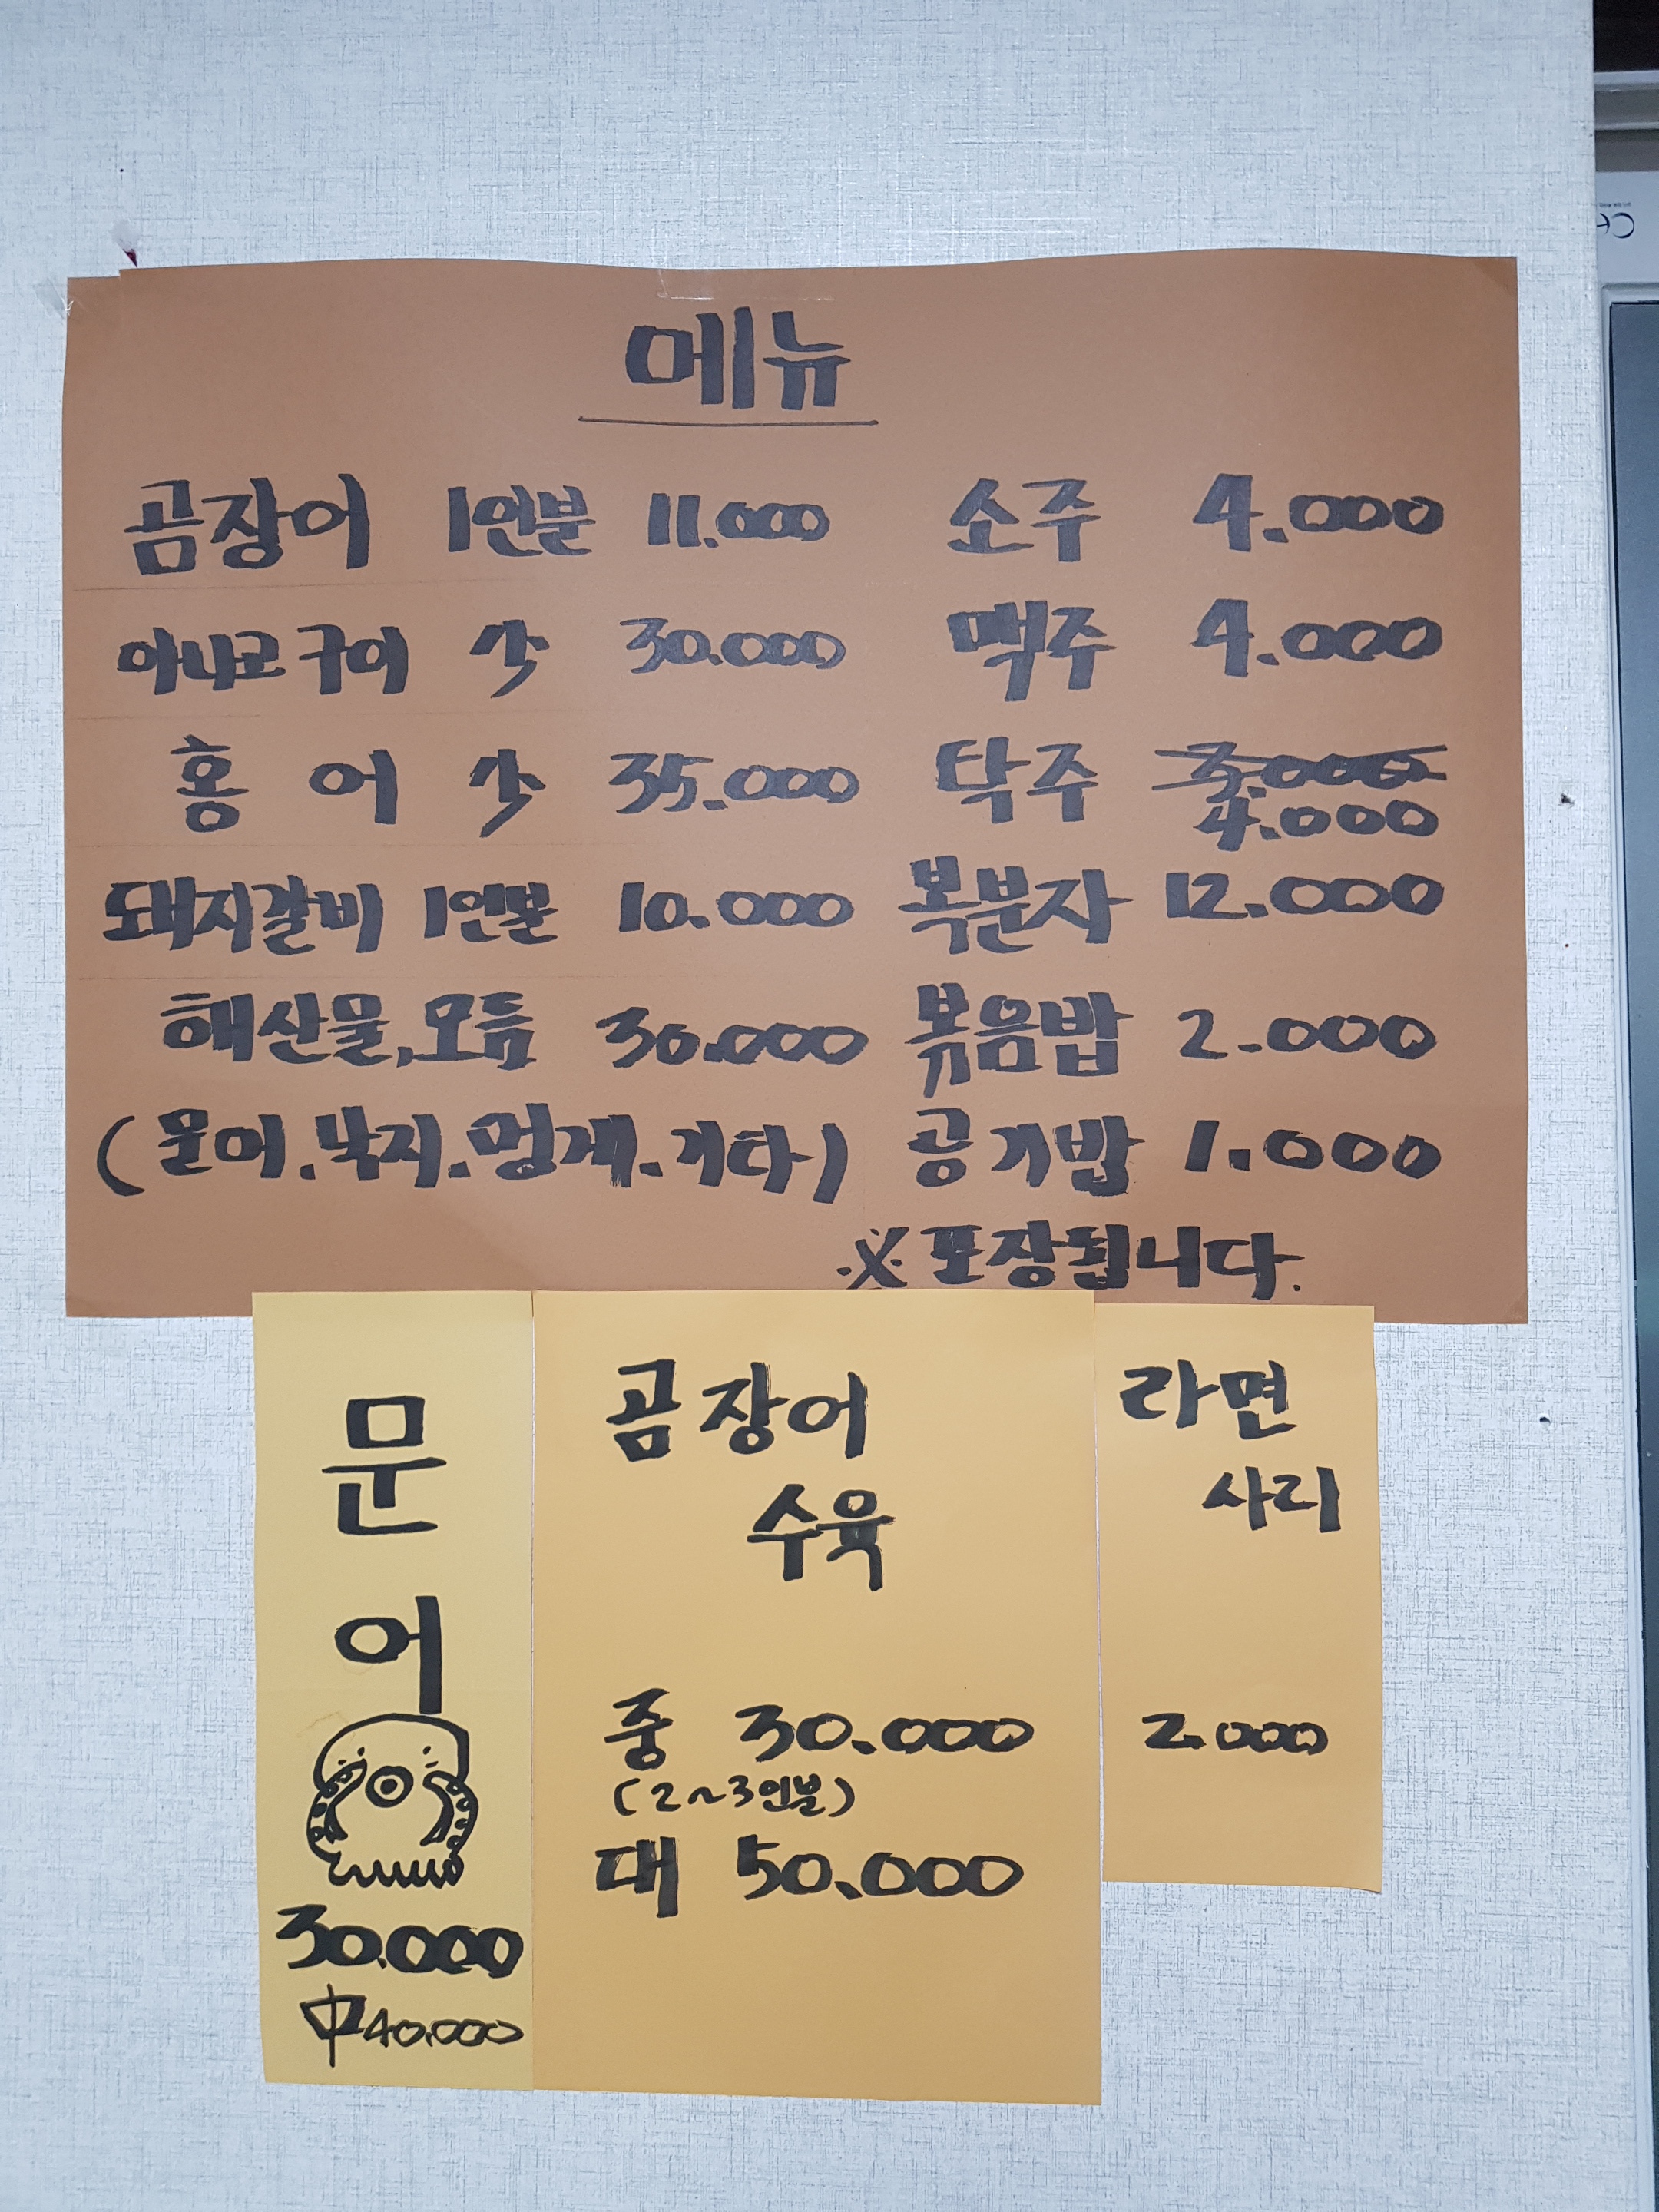 메뉴
곰장어 1인분 11.000
아나고구이 小 30.000
홍어 小 35.000
돼지갈비 1인분 10.000
해산물,모듬 30.000
(문어.낙지.멍게.기타)
소주 4.000
맥주 4.000
탁주 3.000
4.000
복분자 12.000
볶음밥 2.000
공기밥 1.000
※포장됩니다.
문
어
30.000
中40.000
곰장어
수육
중 30.000
(2~3인분)
대 50.000
라면
사리
2.000